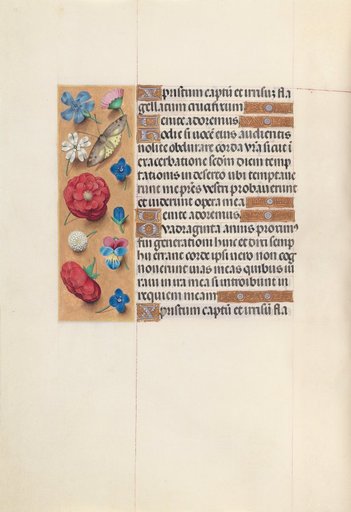 Xpristum captũ et irrisũ fla
gellatum crucifixum
Venite adoremus
Hodie si vocẽ eius audieritis
nolite obdurare corda vr̃a sicut i
exacerbatione scd̃m diem temp
tationis in deserto ubi temptaue
runt me pr̃es vestri probauerunt
et viderunt opera mea
Venite adoremus
Quadraginta annis proxim⁹
fui generationi huic et dixi semp
hii errant corde ipsi vero non cog
nouerunt vias meas quibus iu
raui in ira mea si introibunt in
requiem meam
Xpristum captũ et irrisũ fla